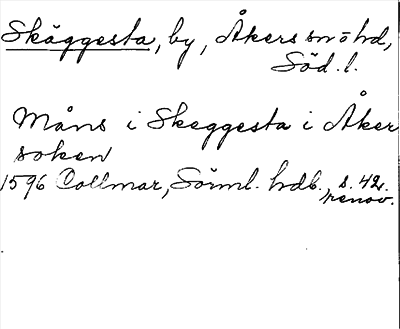 Skäggesta, by, Åkers sn o hd,
Söd. l.
Måns i Skeggesta i Åker
soken
1596 Collmar, Sörml. hdb., s. 42.
renov.